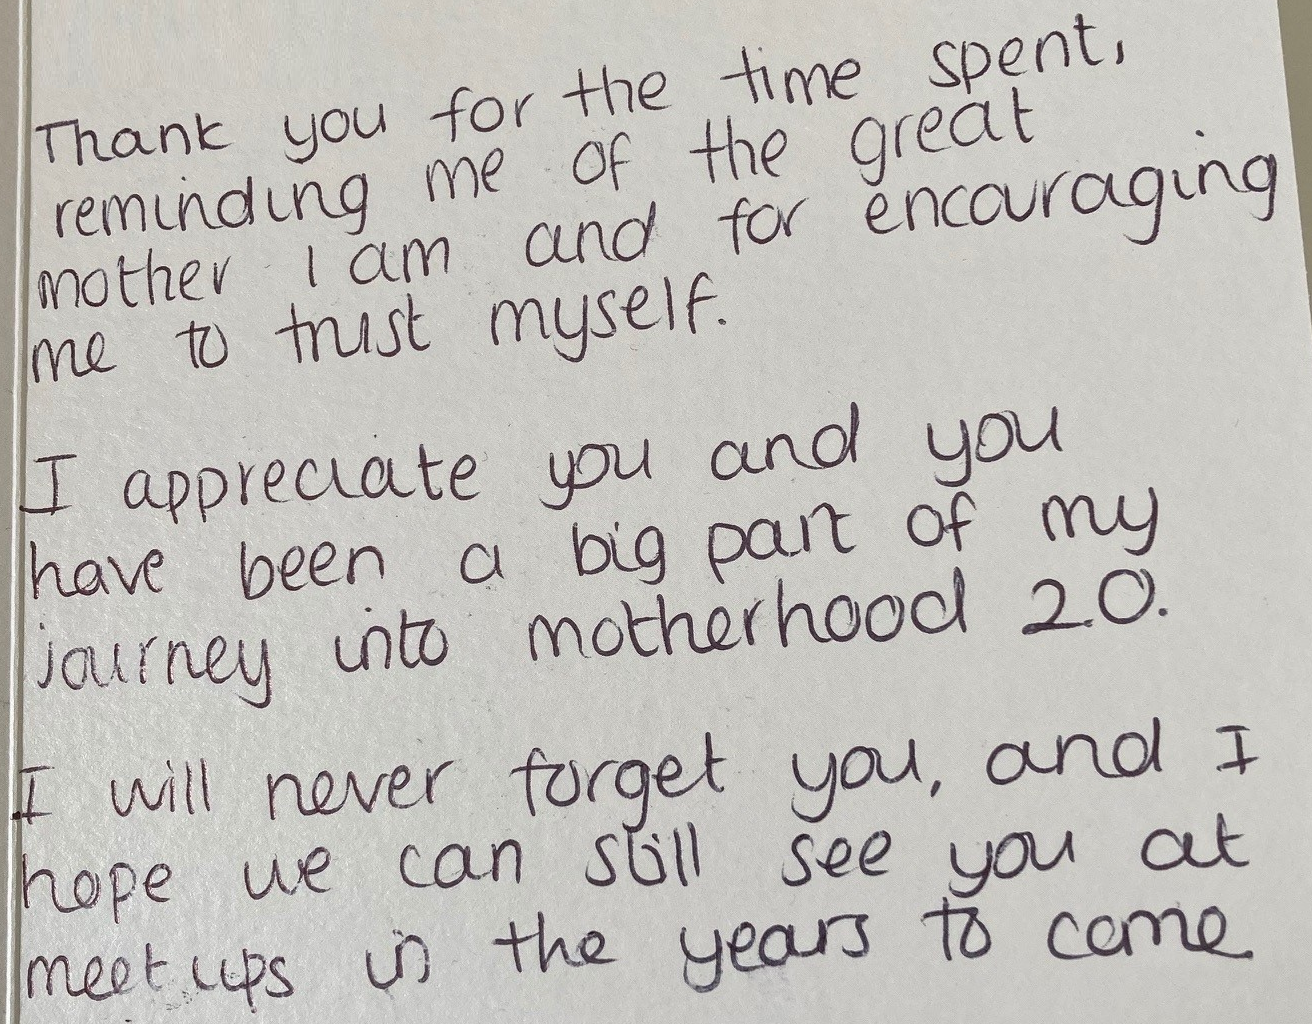 Thank you for the time spent,
reminding me of the great
mother I am and for encouraging
me to trust myself.
I appreciate you and you
have been a big part of my
journey into motherhood 2.0.
I will never forget you, and I
hope we can still see you at
meet ups in the years to come